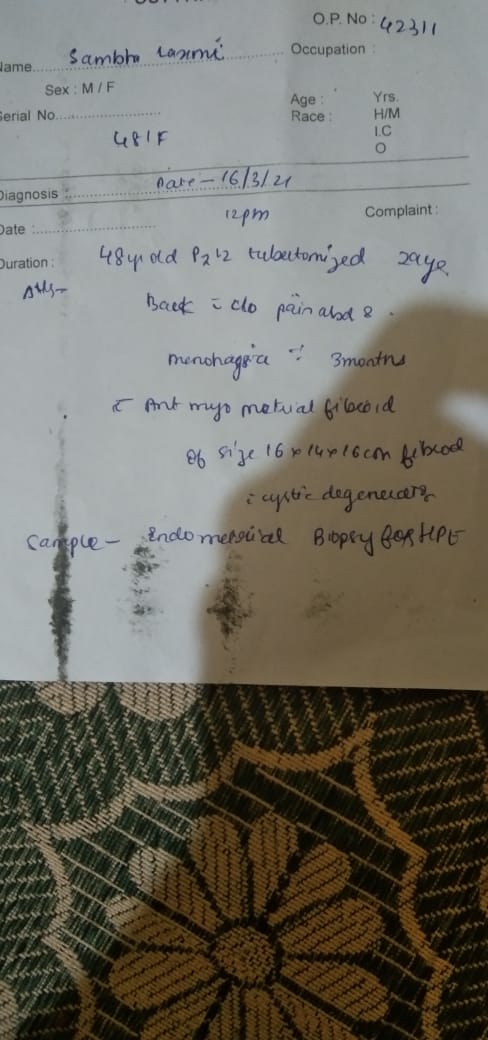 O.P. No : 42311
Name Sambha Laxmi Occupation :
Sex : M / F
Age : Yrs.
Serial No. Race : H/M
I.C
48/F O
Diagnosis : Date - 16/3/21
12pm Complaint :
Date :
Duration : 48yr old P2L2 tubectomized
Back c̄ c/o pain abd &
menorhagia 3months
c̄ Ant myometrial fibroid
Of size 16 x 14 x 16cm fibroid
c̄ cystic
Sample - Endometrial Biopsy for HPE